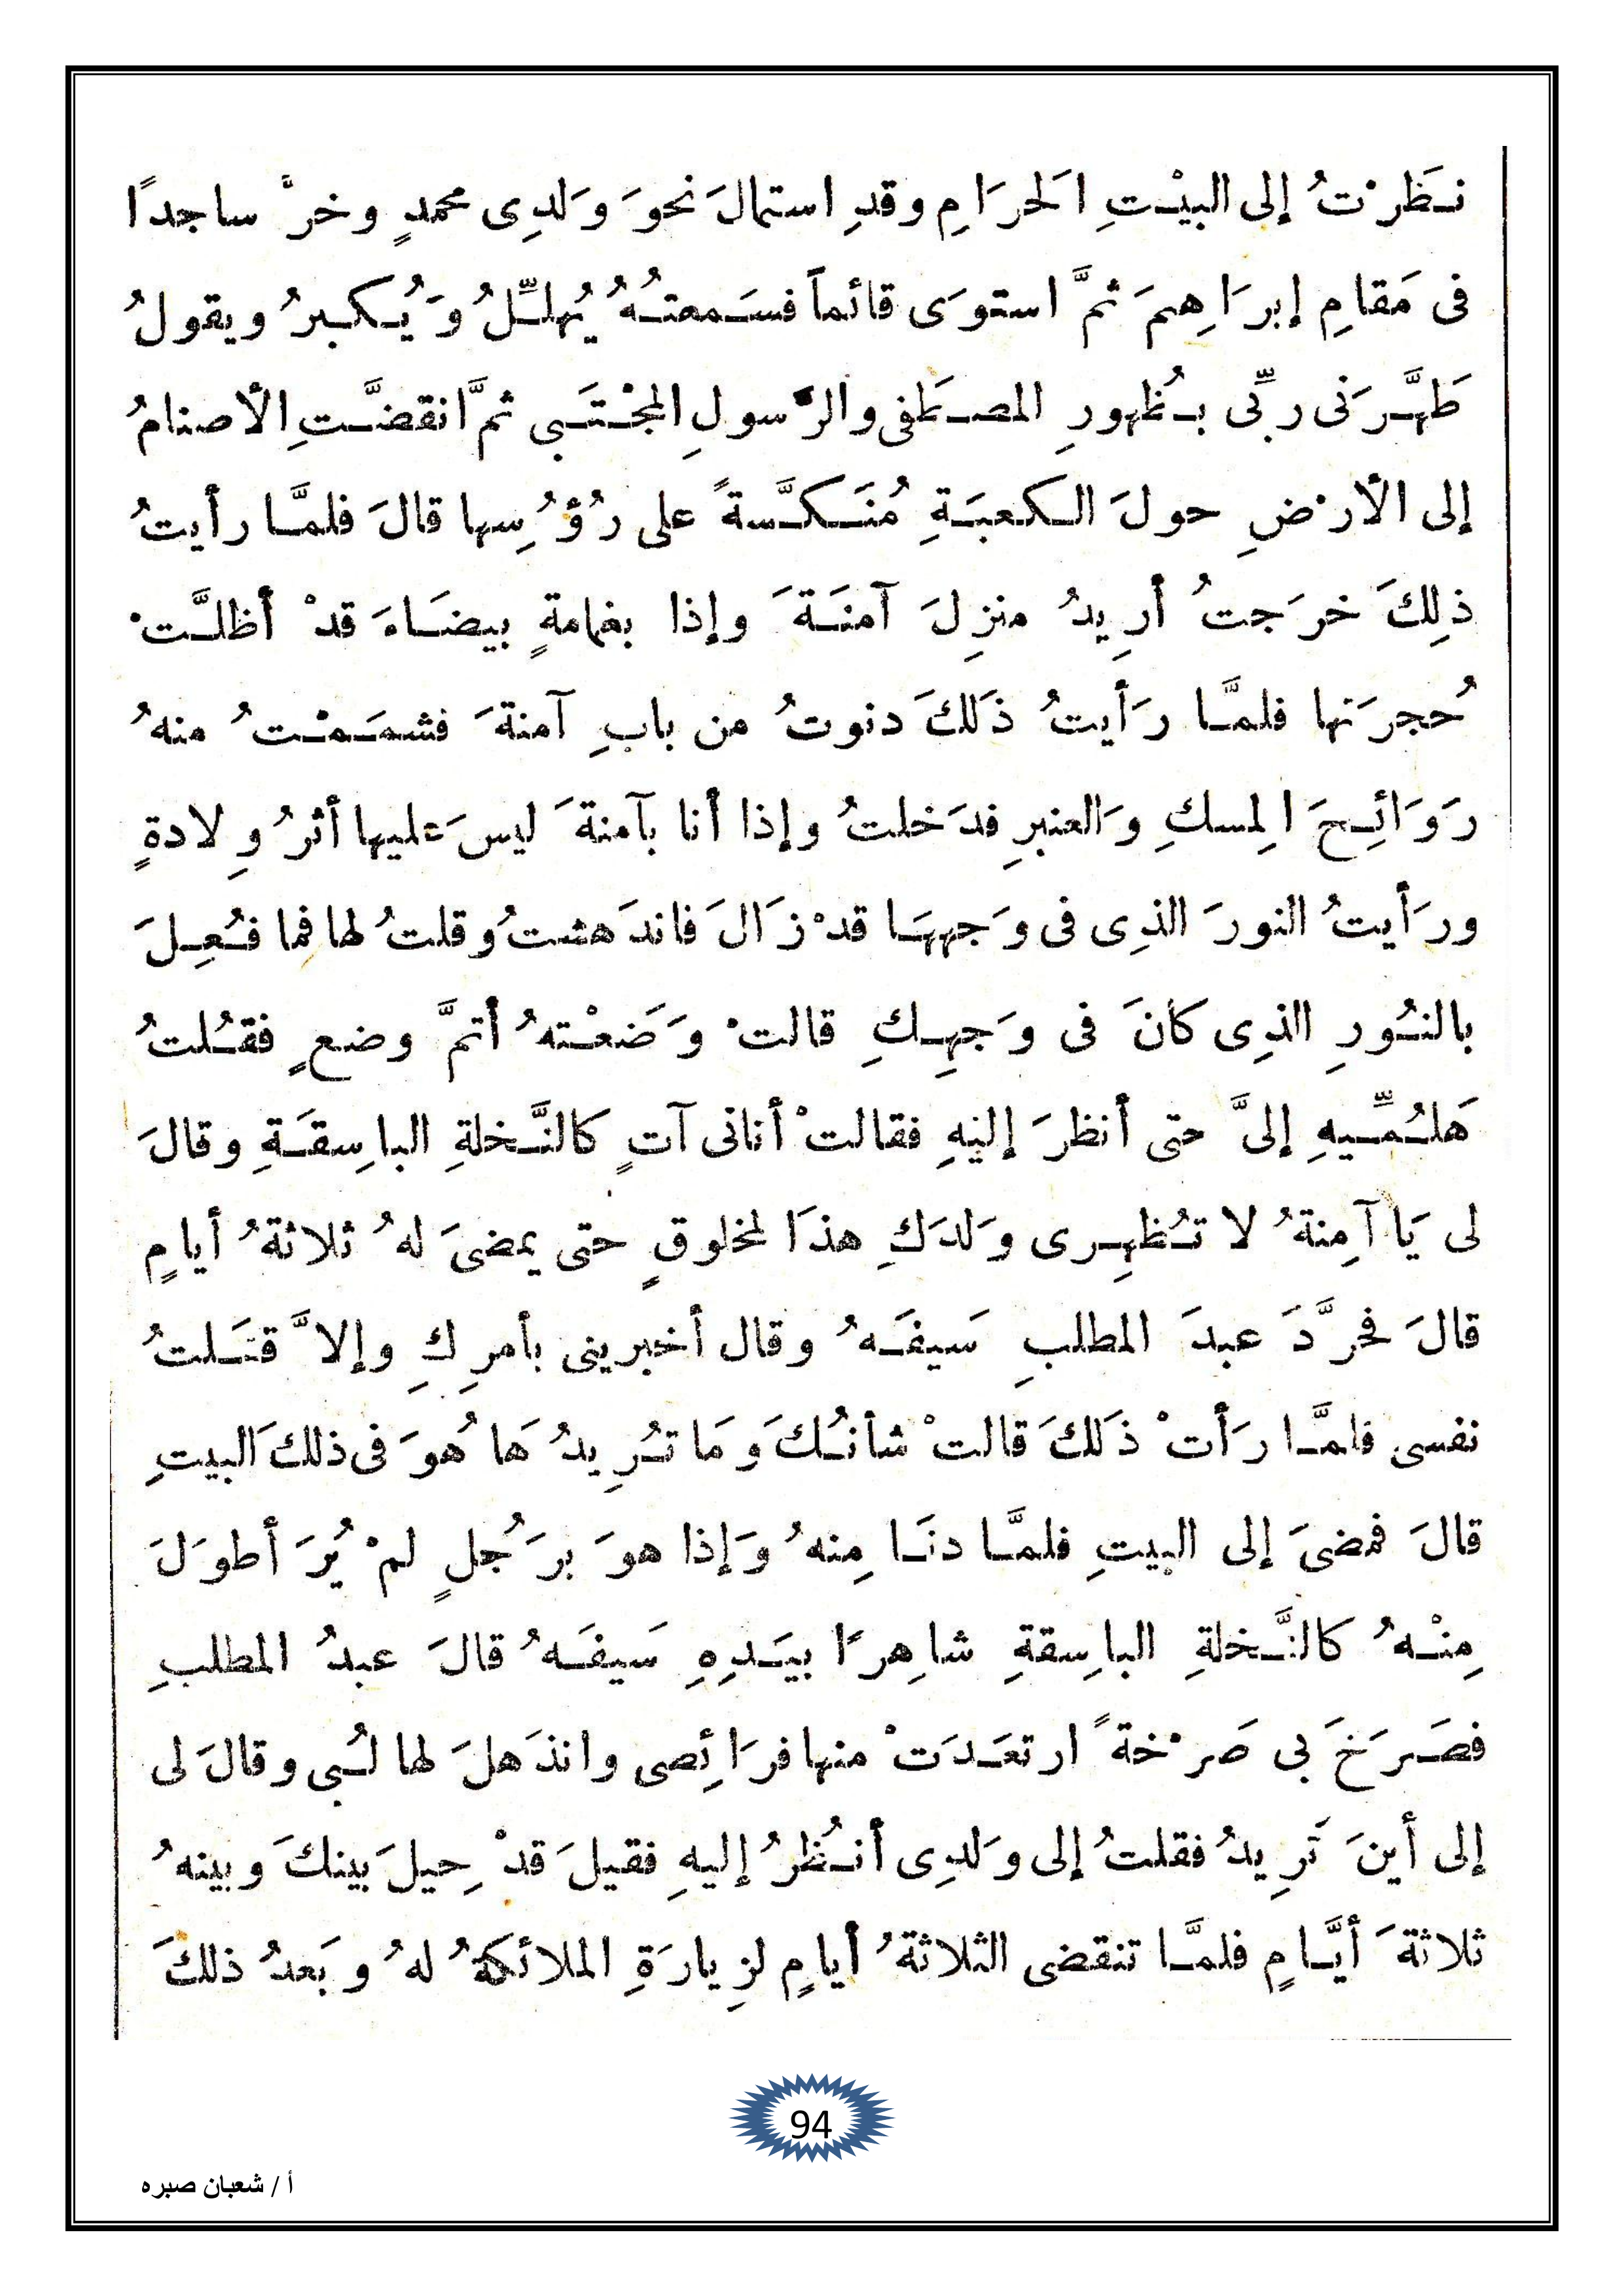 نَظَرْتُ إلى البيْتِ الَحرَامِ وقدِ استمالَ نحوَ وَلدِى محمدٍ وخرَّ ساجدًا
فى مَقامِ إبرَاهِيمَ ثمَّ استوَى قائماً فسَمعتُهُ يُهلِّلُ وَيُكبرُ ويقولُ
طَهَّرَنى ربِّى بِظُهورِ المصطَفى والرَّسولِ المجْتَبى ثمَّ انقضَّتِ الأصنامُ
إلى الأرْضِ حولَ الكعبَةِ مُنَكَّسةً على رُؤُسِها قالَ فلمَّا رأيتُ
ذلِكَ خرَجتُ أرِيدُ منزِلَ آمنَةَ وإذا بغمامةٍ بيضَاءَ قدْ أظلَّتْ
حُجرَتها فلمَّا رَأيتُ ذَلكَ دنوتُ من بابِ آمنةَ فشمَمْتُ منهُ
رَوَائِحَ المِسكِ وَالعنبرِ فدَخلتُ وإذا أنا بآمنةَ ليسَ عَليها أثرُ وِلادةٍ
ورَأيتُ النورَ الذِى فى وَجهِهَا قدْ زَالَ فاندَهشتُ وقلتُ لها فما فُعِلَ
بالنُورِ الذِى كانَ فى وَجهِكِ قالتْ وَضَعْتهُ أتمَّ وضعٍ فقُلتُ
هَلُمِّيهِ إلىَّ حتى أنظرَ إليْهِ فقالتْ أتانى آتٍ كالنَّخلةِ الباسِقَةِ وقالَ
لى يَا آمِنةُ لا تُظهِرى وَلدَكِ هذَا لمخلوقٍ حتى يمضىَ لهُ ثلاثةُ أيامٍ
قالَ فجرَّدَ عبدَ المطلبِ سَيفَهُ وقال أخبرينى بأمرِكِ وإلاَّ قتَلتُ
نفسى فلمَّا رَأتْ ذَلكَ قالتْ شأنُكَ وَمَا تُرِيدُ هَا هُوَ فى ذلكَ البيتِ
قالَ فمضىَ إلى البيتِ فلمَّا دنَا مِنهُ وَإذا هوَ برَجُلٍ لمْ يُرَ أطوَلَ
مِنْهُ كالنَّخلةِ الباسِقةِ شاهِرًا بيَدِهِ سَيفَهُ قالَ عبدُ المطلبِ
فصَرَخَ بى صَرْخةً ارتعَدَتْ منها فرَائِصى وانذَهلَ لها لُبى وقالَ لى
إلى أينَ تَرِيدُ فقلتُ إلى وَلدِى أنُظرُ إليهِ فقيلَ قدْ حِيلَ بينكَ وبينهُ
ثلاثةَ أيَّامٍ فلمَّا تنقضى الثلاثةُ أيامٍ لزِيارَةِ الملائكةُ لهُ وبَعدُ ذلكَ
94
أ / شعبان صبره